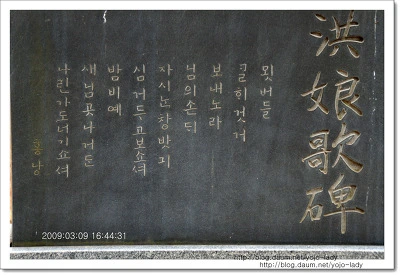 洪娘歌碑
묏버들
ᄀᆞᆯ히것거
보내노라
님의손ᄃᆡ
자시ᄂᆞᆫ창밧긔
심거두고보쇼셔
밤비예
새닙곳나거든
나린가도너기쇼셔
홍낭
2009:03:09 16:44:31
http://blog.daum.net/yojo-lady
http://blog.daum.net/yojo-lady